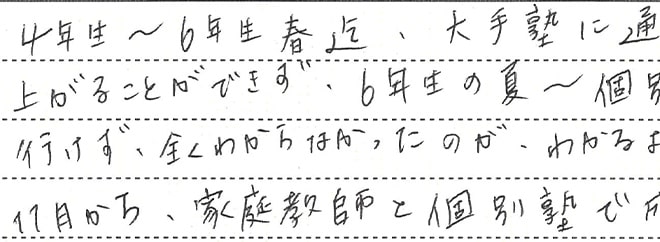 4年生～6年生春迄、大手塾に通
上がることができず、6年生の夏～個別
行けず、全くわからなかったのが、わかるよ
11月から、家庭教師と個別塾で